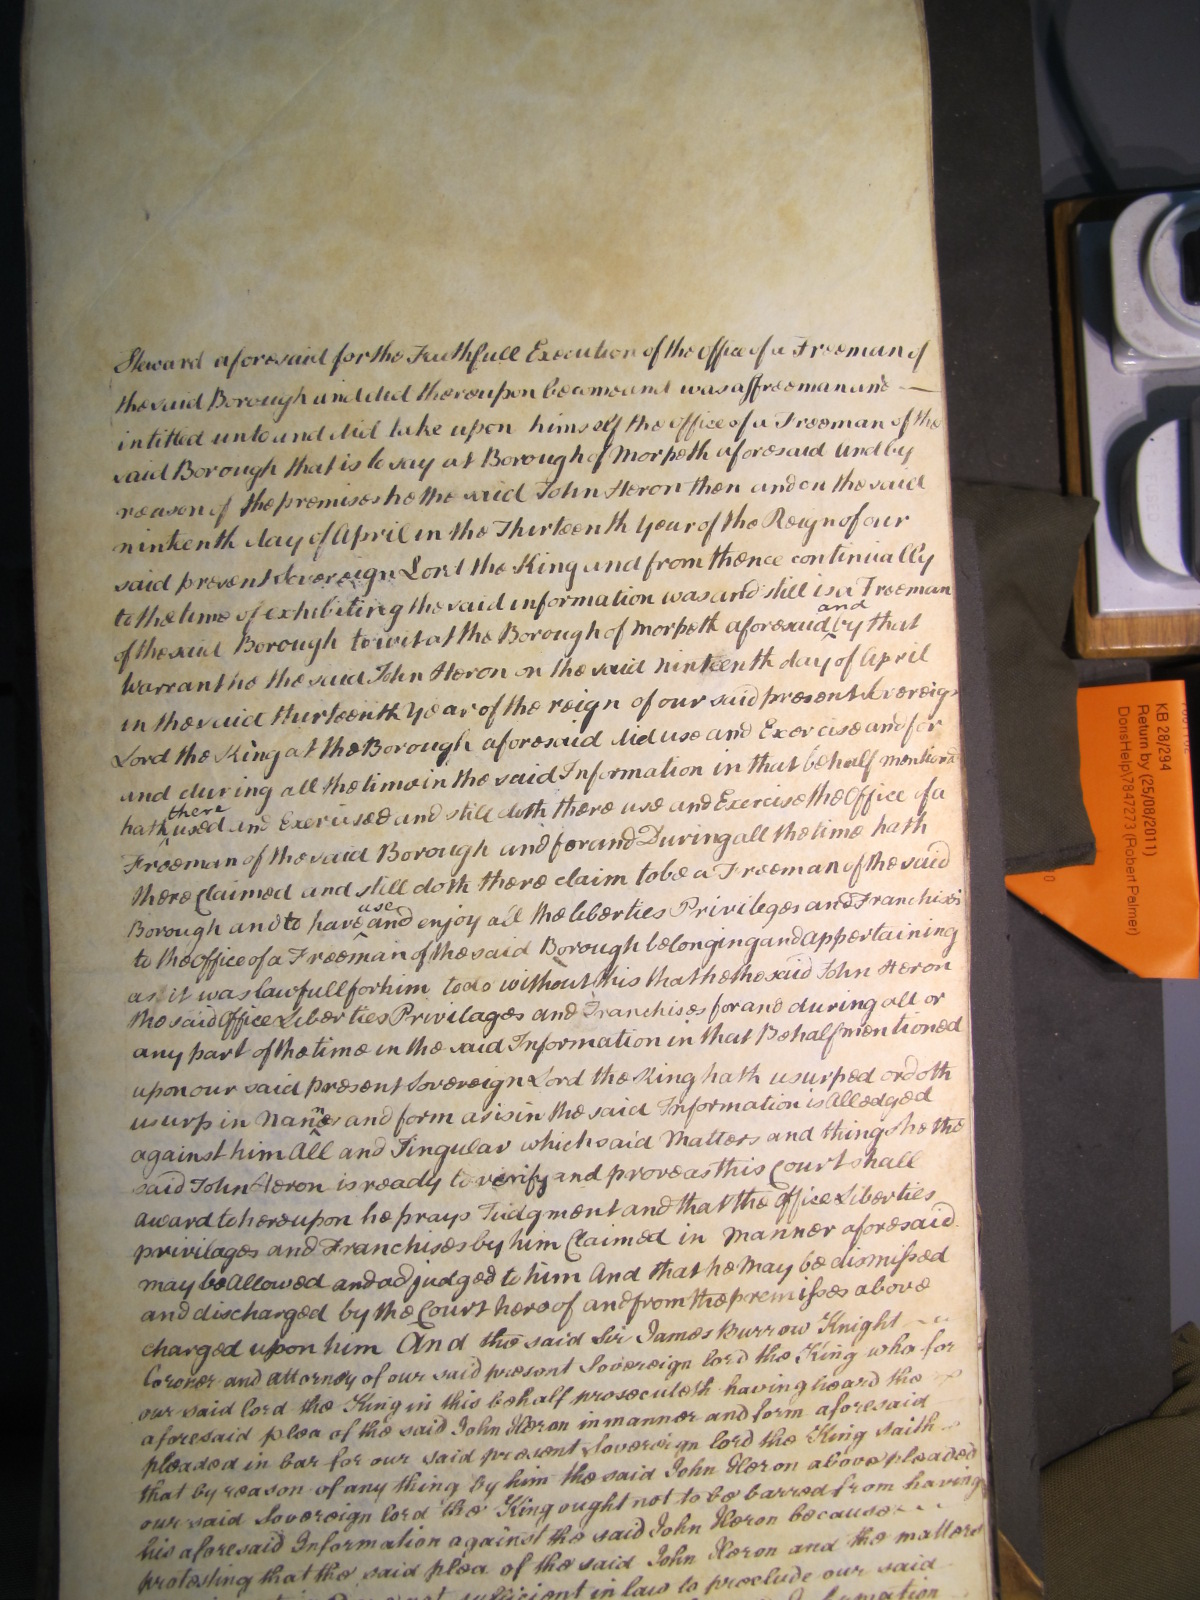 Steward aforesaid for the Faithfull Execution of the office of a Freeman of
the said Borough and did thereupon become and was a ffreeman and
intitled unto and did take upon himself the Office of a Freeman of the
said Borough that is to say at Borough of Morpeth aforesaid And by
reason of the premises he the said John Heron then and on the said
ninteenth day of April in the Thirteenth Year of the Reign of our
said present Sovereign Lord the King and from thence continually
to the time of exhibiting the said information was and still is a Freeman
of the said Borough to wit at the Borough of Morpeth aforesaid and by that
Warrant he the said John Heron on the said ninteenth day of April
in the said thirteenth Year of the reign of our said present Sovereign
Lord the King at the Borough aforesaid did use and Exercise and for
and during all the time in the said Information in that behalf mentioned
hath there used and Exercised and still doth there use and Exercise the Office of a
Freeman of the said Borough and for and During all the time hath
there Claimed and still doth there claim to be a Freeman of the said
Borough and to have use and enjoy all the liberties Privileges and Franchises
to the office of a Freeman of the said Borough belonging and appertaining
as it was lawfull for him to do without this that he the said John Heron
the said Office Liberties Privilages and Franchises for and during all or
any part of the time in the said Information in that Behalf mentioned
upon our said present Sovereign Lord the King hath usurped or doth
usurp in and form as is in the said Information is Alledged
against him All and Singular which said Matters and things he the
said John Heron is ready to verify and prove as this Court shall
award whereupon he prays Judgment and that the Office Liberties
privilages and Franchises by him Claimed in Manner aforesaid
may be Allowed and adjudged to him And that he May be dismissed
and discharged by the Court hereof and from the premisses above
charged upon him And the said Sir James Burrow Knight
Coroner and attorney of our said present Sovereign lord the King who for
our said lord the King in this behalf prosecuteth having heard the
aforesaid plea of the said John Heron in manner and form aforesaid
pleaded in bar for our said present Sovereign lord the King saith
that by reason of any thing by him the said John Heron above pleaded
our said Sovereign lord the King ought not to be barred from having
his aforesaid Information against the said John Heron because
protesting that the said plea of the said John Heron and the matters
sufficient in law to preclude our said
Information
KB 28/294
Return by (25/08/2011)
DorisHelp\7847273 (Robert Palmer)